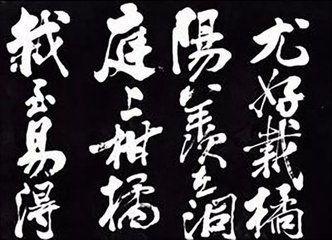 尤好栽橘
陽羨在洞
庭上柑橘
栽至易得